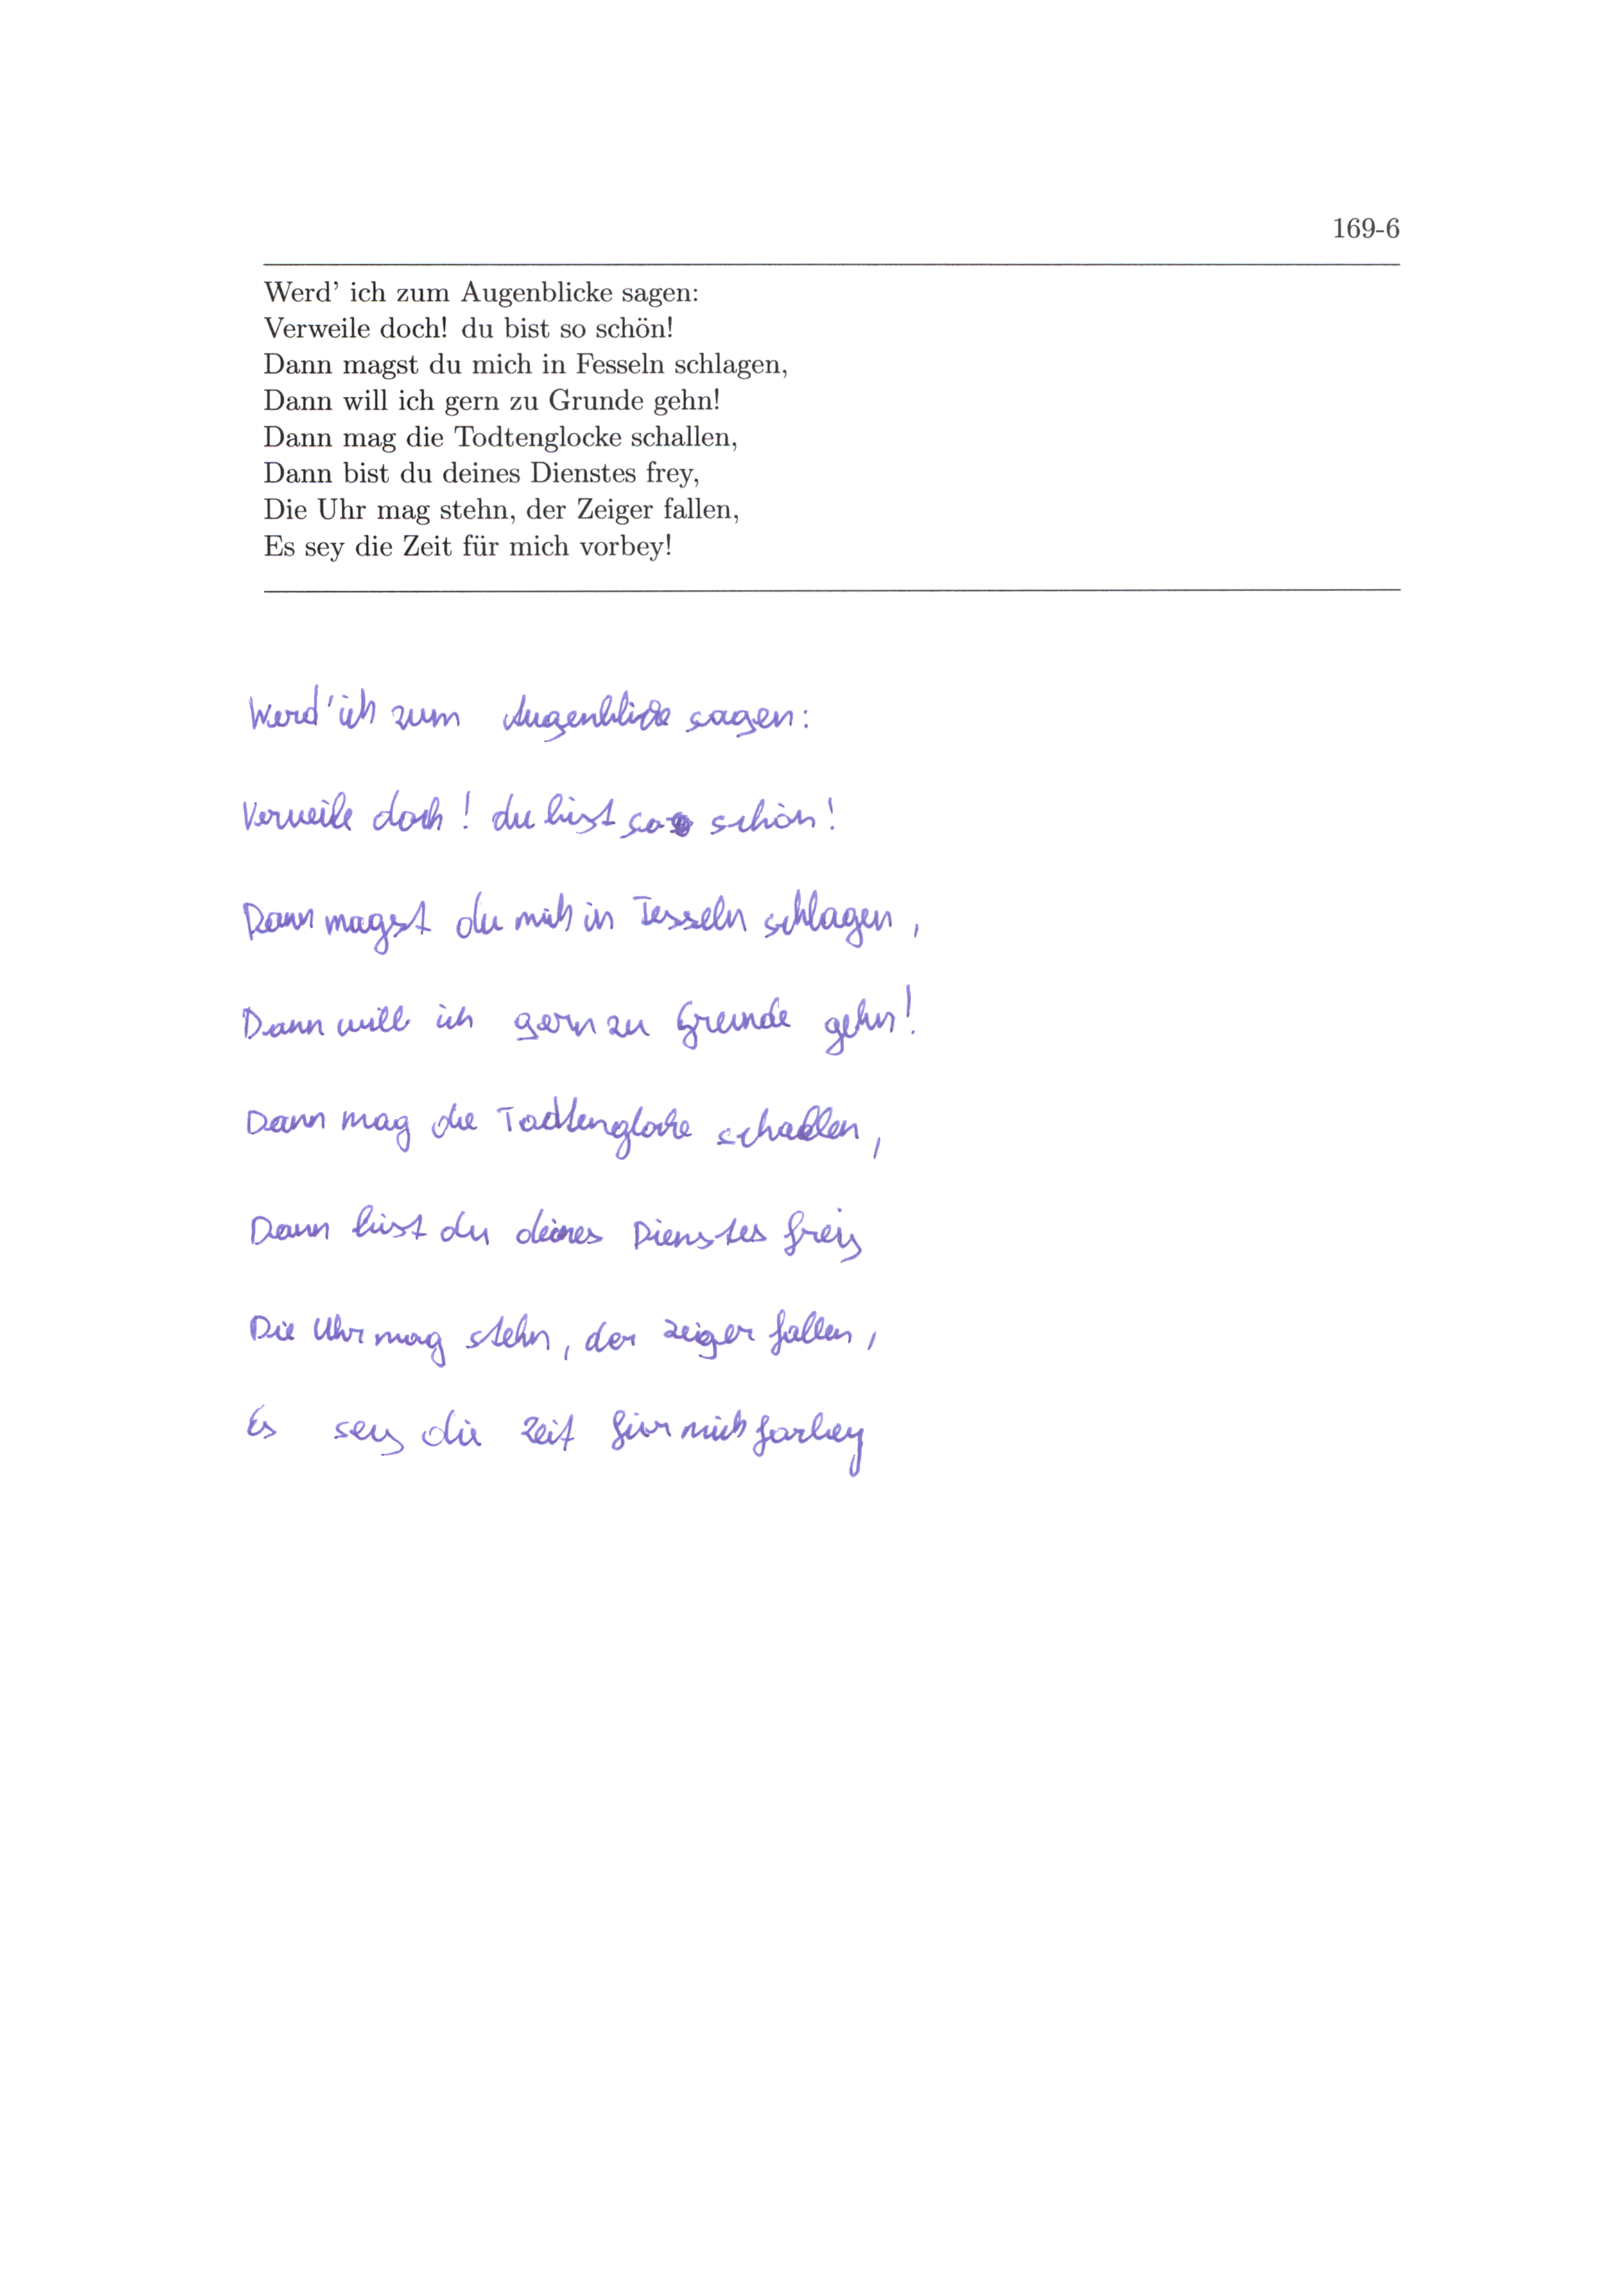 169-6
Werd' ich zum Augenblicke sagen:
Verweile doch! du bist so schön!
Dann magst du mich in Fesseln schlagen,
Dann will ich gern zu Grunde gehn!
Dann mag die Todtenglocke schallen,
Dann bist du deines Dienstes frey,
Die Uhr mag stehn, der Zeiger fallen,
Es sey die Zeit für mich vorbey!
Werd' ich zum Augenblicke sagen:
Verweile doch! du bist so schön!
Dann magst du mich in Fesseln schlagen,
Dann will ich gern zu Grunde gehn!
Dann mag die Todtenglocke schallen,
Dann bist du deines Dienstes frey
Die Uhr mag stehn, der Zeiger fallen,
Es sey die Zeit für mich forbey